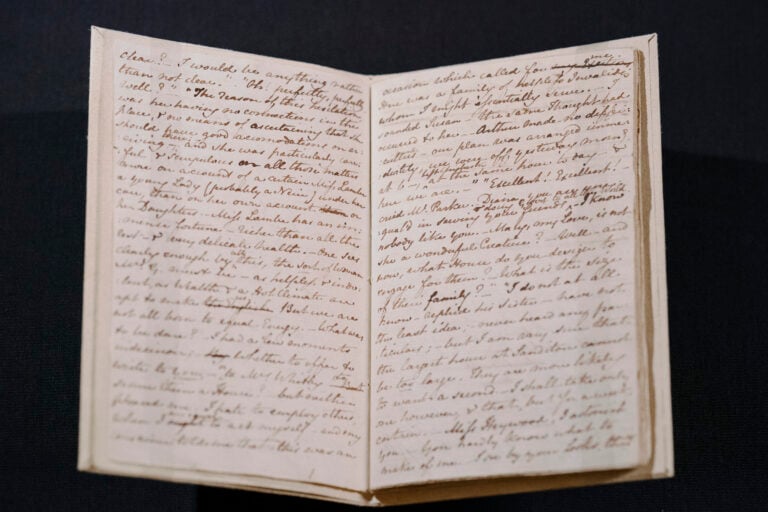 clear? - I would be anything rather
than not clear." - "Oh! perfectly, perfectly
well." - "The reason of this hesitation
was her having no connections in the
Place, & no means of ascertaining that she
should have good accomodations on ar-
riving; - and she was particularly care-
ful & scrupulous on all those matters
more on account of a certain Miss Lambe
a young Lady (probably a Neice) under her
care, than on her own account or
her Daughters. - Miss Lambe has an im-
mense fortune - richer than all the
rest - & very delicate Health. - One sees
clearly enough by all this, the sort of Woman
Mrs G. must be - as helpless & indo-
lent, as Wealth & a Hot Climate are
apt to make us. But we are
not all born to equal Energy. - What was
to be done? - I had a few moments
indecision; - Whether to offer to
write to you, - or to Mrs Whitby to
secure them a House? - but neither
pleased me. - I hate to employ others,
when I am equal to act myself - and my
conscience told me that this was an
occasion which called for me.
Here was a family of helpless Invalides
whom I might essentially serve. - I
sounded Susan - the same Thought had
occurred to her. - Arthur made no diffi-
culties - our plan was arranged imme-
diately, we were off yesterday morng
at 6 -, left at the same hour today - &
here we are. - " "Excellent! - Excellent! -
cried Mr Parker. - Diana, you are une-
qual'd in serving your friends & doing Good to all the World. - I know
nobody like you. - Mary, my Love, is not
she a wonderful Creature? - Well - and
now, what House do you design to
engage for them? - What is the size
of their family? - " "I do not at all
know - replied his Sister - have not
the least idea; - never heard any par-
ticulars; - but I am very sure that
the largest house at Sanditon cannot
be too large. They are more likely
to want a second. - I shall take only
one however, & that, but for a week
certain. - Miss Heywood, I astonish
you. - You hardly know what to
make of me. - I see by your Looks, that